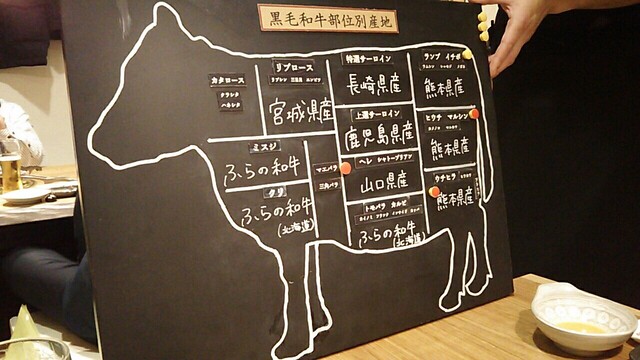 黒毛和牛部位別産地
カタロース
クラシタ
ハネシタ
リブロース
宮城県産
特選サーロイン
長崎県産
上選サーロイン
鹿児島県産
ヘレ シャトーブリアン
山口県産
トモバラ カルビ
ふらの和牛
(北海道)
ミスジ
ふらの和牛
クリ
ふらの和牛
(北海道)
マエバラ
三角バラ
ランプ イチボ
熊本県産
ヒウチ マルシン
熊本県産
ウチヒラ
熊本県産